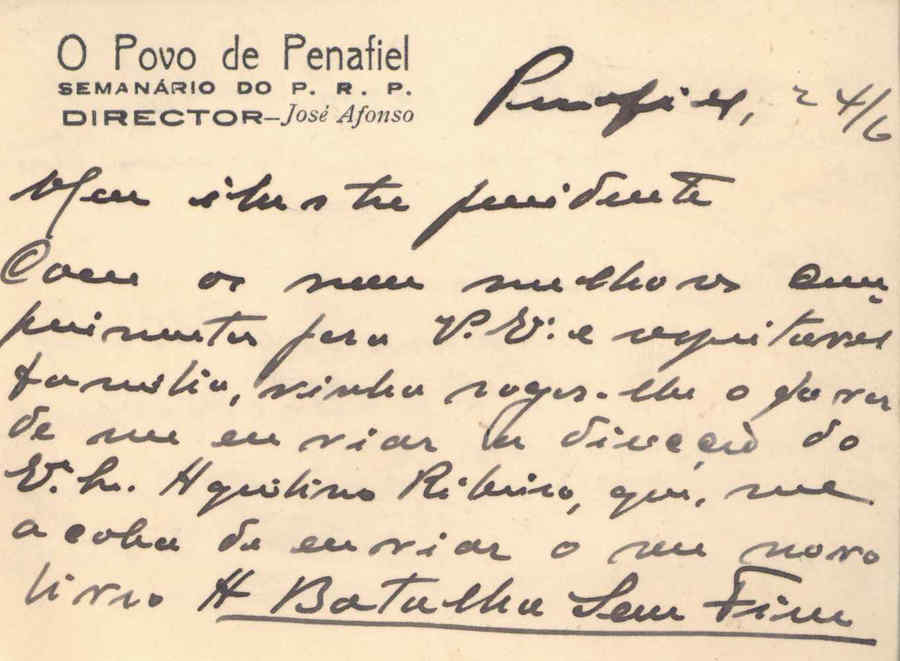 O Povo de Penafiel
SEMANÁRIO DO P. R. P.
DIRECTOR—José Afonso
Penafiel, 24/6
Meu ilustre presidente
Com os meus melhores cum-
primentos para V. Ex.ª e respeitavel
familia, vinha rogar-lhe o favor
de me enviar a direcção do
Ex. Sr. Aquilino Ribeiro, que, me
acaba de enviar o seu novo
livro A Batalha Sem Fim